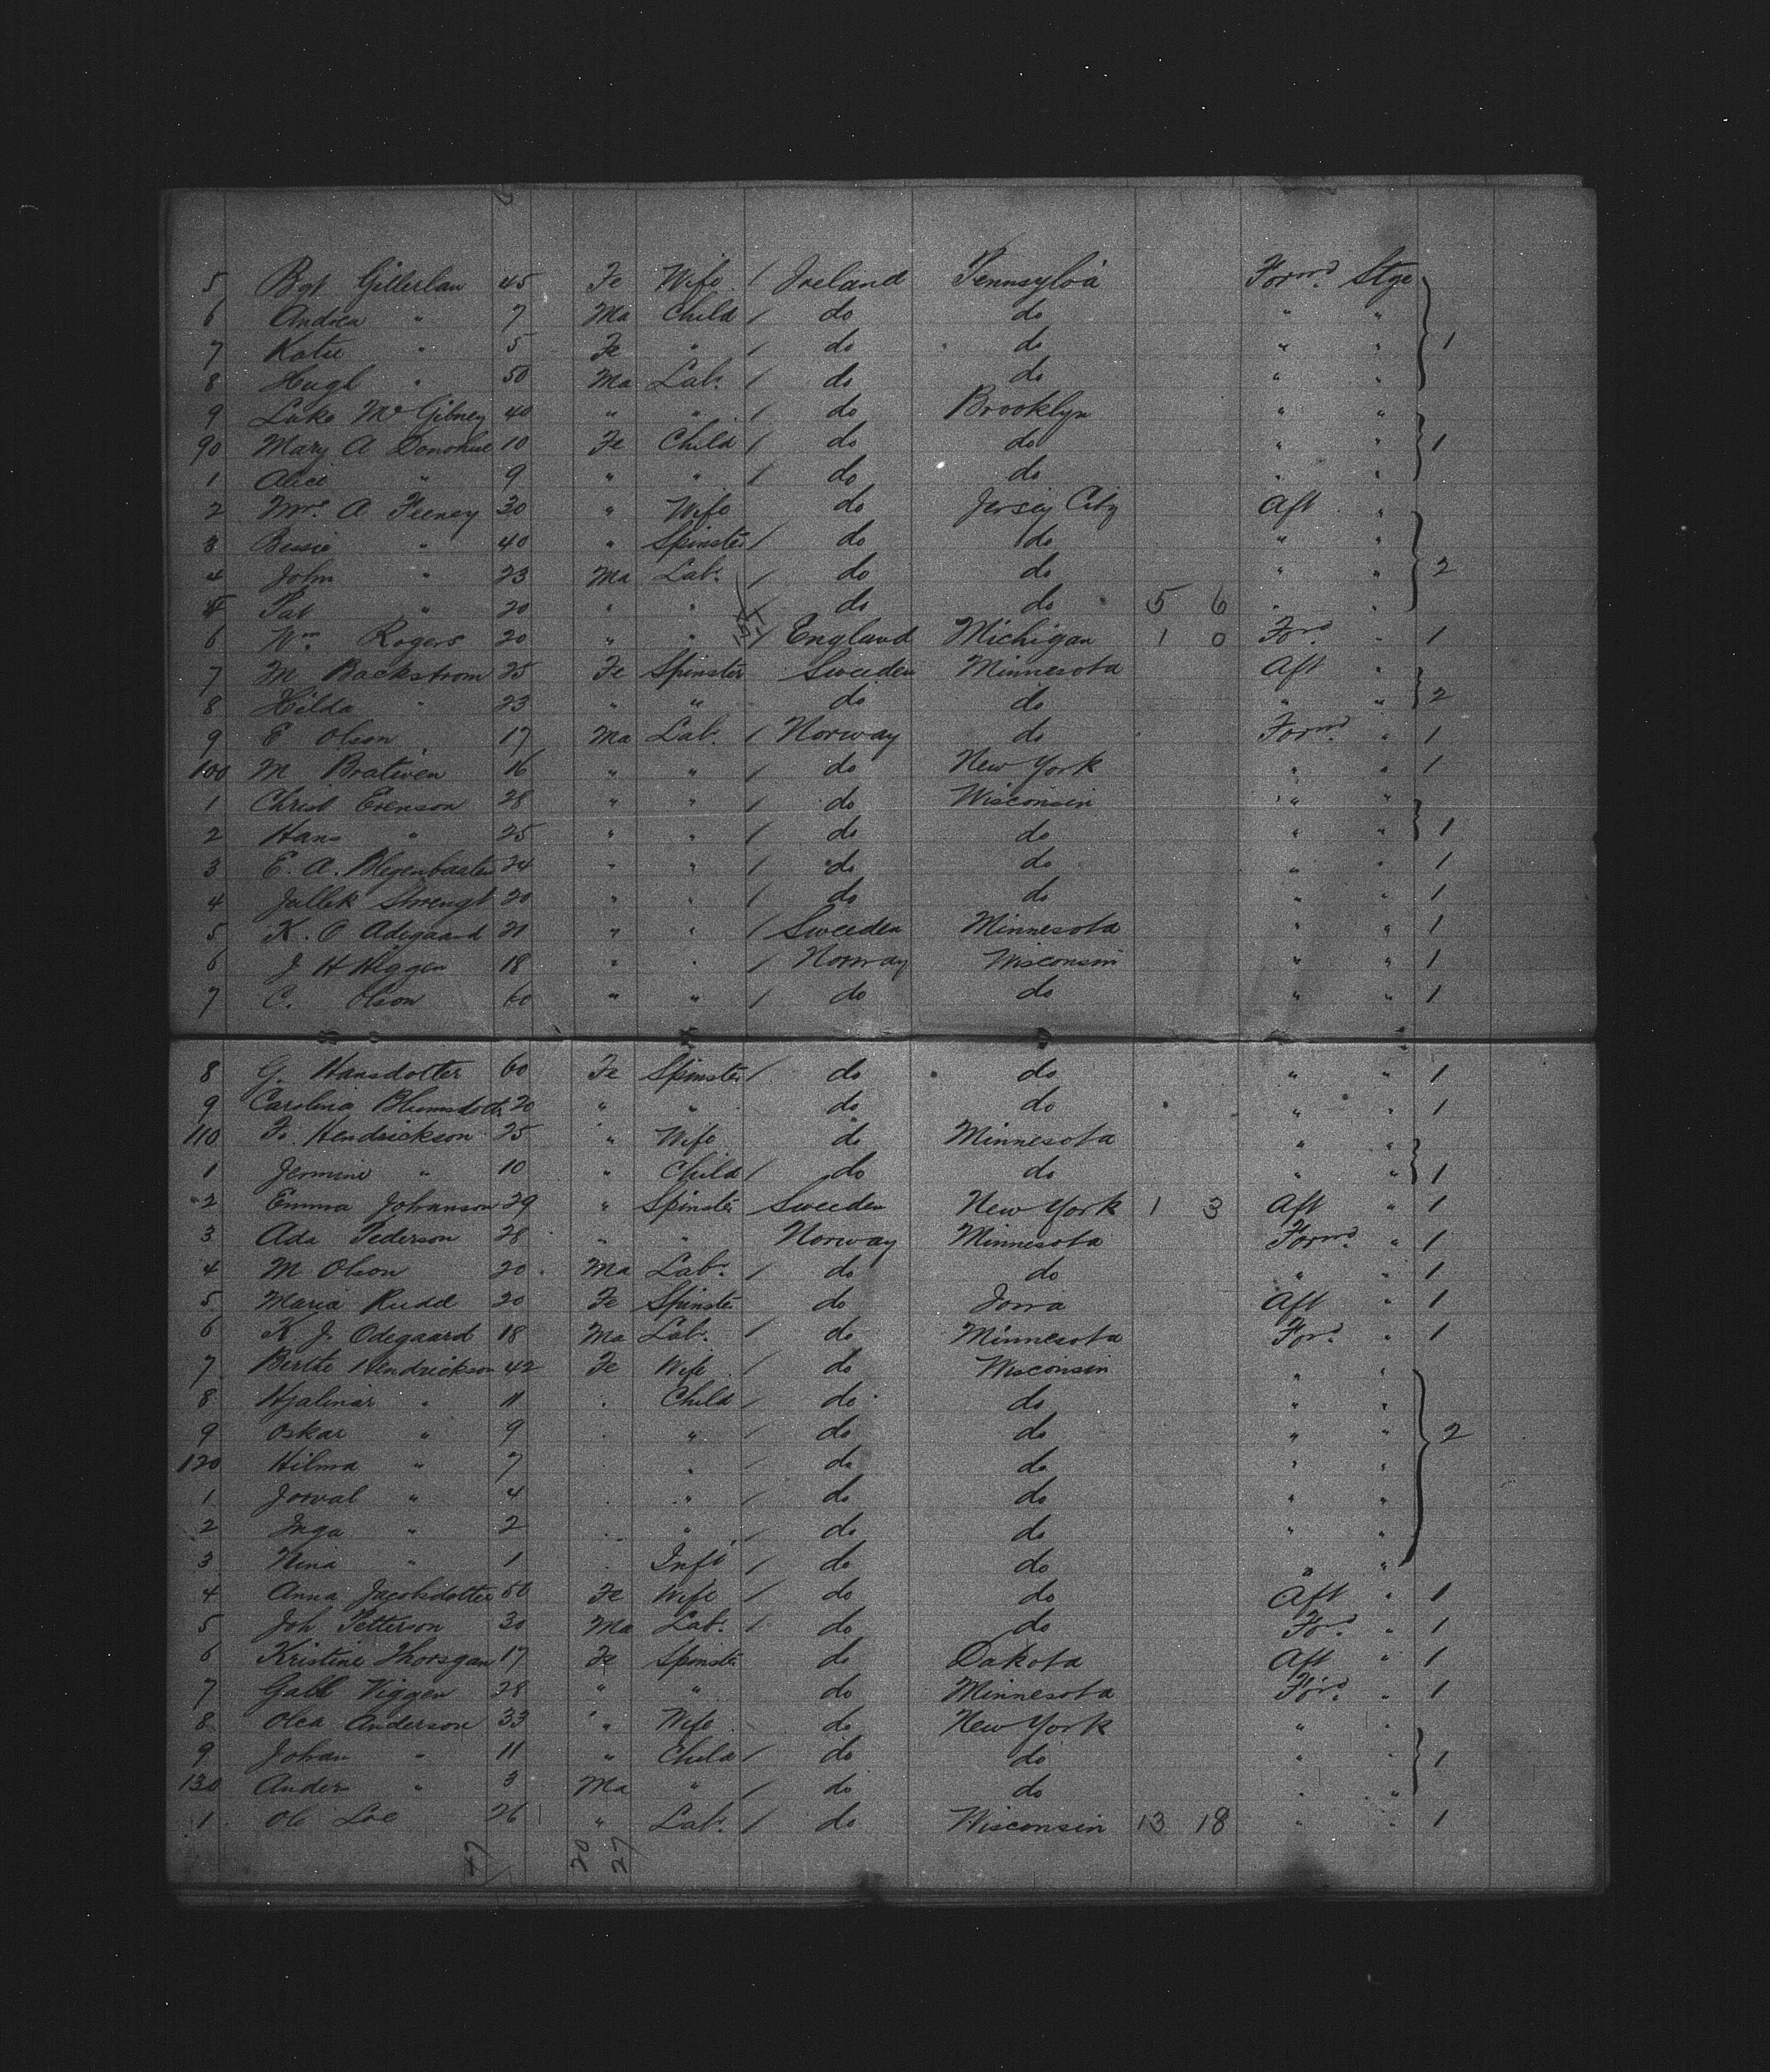 5 Bgt Gillerlan 45 Fe Wife / Ireland Pennsylva Forwd. Stge
6 Andrea " 7 Ma Child / do do " "
7 Katie " 5 Fe " / do do " " 1
8 Hugh " 50 Ma Labr. / do do " "
9 Luke McGibney 40 " " / do Brooklyn " "
90 Mary A Donohue 10 Fe Child / do do " " 1
1 Alice " 9 " " / do do " "
2 Mrs. A Feeney 30 " Wife do Jersey City Aft "
3 Bessie " 40 " Spinster / do do " "
4 John " 23 Ma Labr. / do do " " 2
5 Pat " 20 " " / do do 5 6 " "
6 Wm. Rogers 20 " " / England Michigan 1 0 Ford. " 1
7 M Backstrom 25 Fe Spinster Sweeden Minnesota Aft "
8 Hilda " 23 " " do do " " 2
9 E Olson 17 Ma Labr. / Norway do Forwd. " 1
100 M Brativen 16 " " / do New York " " 1
1 Christ Evenson 28 " " / do Wisconsin " "
2 Hans " 25 " " / do do " " 1
3 E. A. 24 " " / do do " " 1
4 20 " " / do do " " 1
5 K. O Adegaard 21 " " / Sweeden Minnesota " " 1
6 J H Higgen 18 " " / Norway Wisconsin " " 1
7 C. Olson 60 " " / do do " " 1
8 G. Hansdotter 60 Fe Spinster / do do " " 1
9 Carolina 20 " " do do " " 1
110 F. Hendrickson 25 " Wife do Minnesota " "
1 Jermine " 10 " Child / do do " " 1
2 Emma Johanson 29 " Spinster Sweeden New York 1 3 Aft " 1
3 Ada Pederson 28 " " Norway Minnesota Forwd. " 1
4 M Olson 20 Ma Labr. / do do " " 1
5 Maria Rudd 20 Fe Spinster do Iowa Aft " 1
6 K. J. Odegaard 18 Ma Labr. / do Minnesota Ford. " 1
7 Berthe Hendrickson 42 Fe Wife / do Wisconsin " "
8 Hjalmar " 11 " Child / do do " "
9 Oskar " 9 " " / do do " " 2
120 Hilma " 7 " " / do do " "
1 Jorval " 4 " " / do do " "
2 Inga " 2 " " / do do " "
3 Nina " 1 " Inft / do do " "
4 Anna Jacobsdotter 50 Fe Wife / do do Aft " 1
5 Joh Petterson 30 Ma Labr. / do do Ford. " 1
6 Kristine Thorsgan 17 Fe Spinster do Dakota Aft " 1
7 Viggen 28 " " do Minnesota Ford. " 1
8 Olea Anderson 33 " Wife do New York " "
9 Johan " 11 " Child / do do " " 1
130 Ander " 3 Ma " / do do " "
1 Ole Loe 26 " Labr. / do Wisconsin 13 18 " " 1
47 20 27